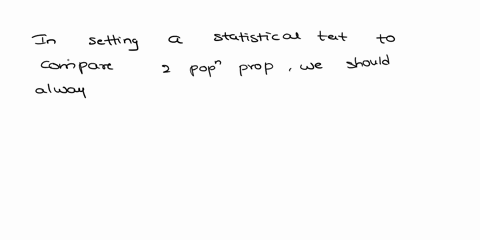 In setting a statistical test to
compare 2 popⁿ prop, we should
alway